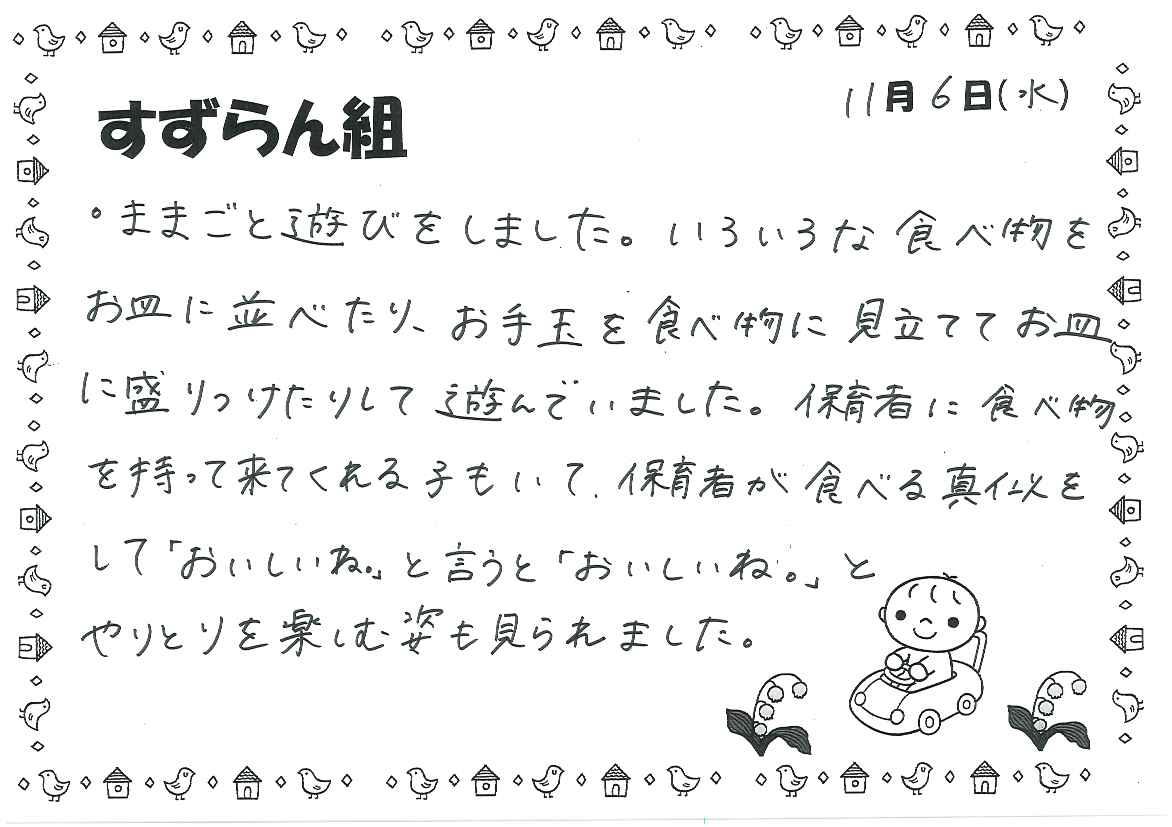 11月6日(水)
すずらん組
・ままごと遊びをしました。いろいろな食べ物を
お皿に並べたり、お手玉を食べ物に見立ててお皿
に盛りつけたりして遊んでいました。保育者に食べ物
を持って来てくれる子もいて、保育者が食べる真似を
して「おいしいね。」と言うと「おいしいね。」と
やりとりを楽しむ姿も見られました。